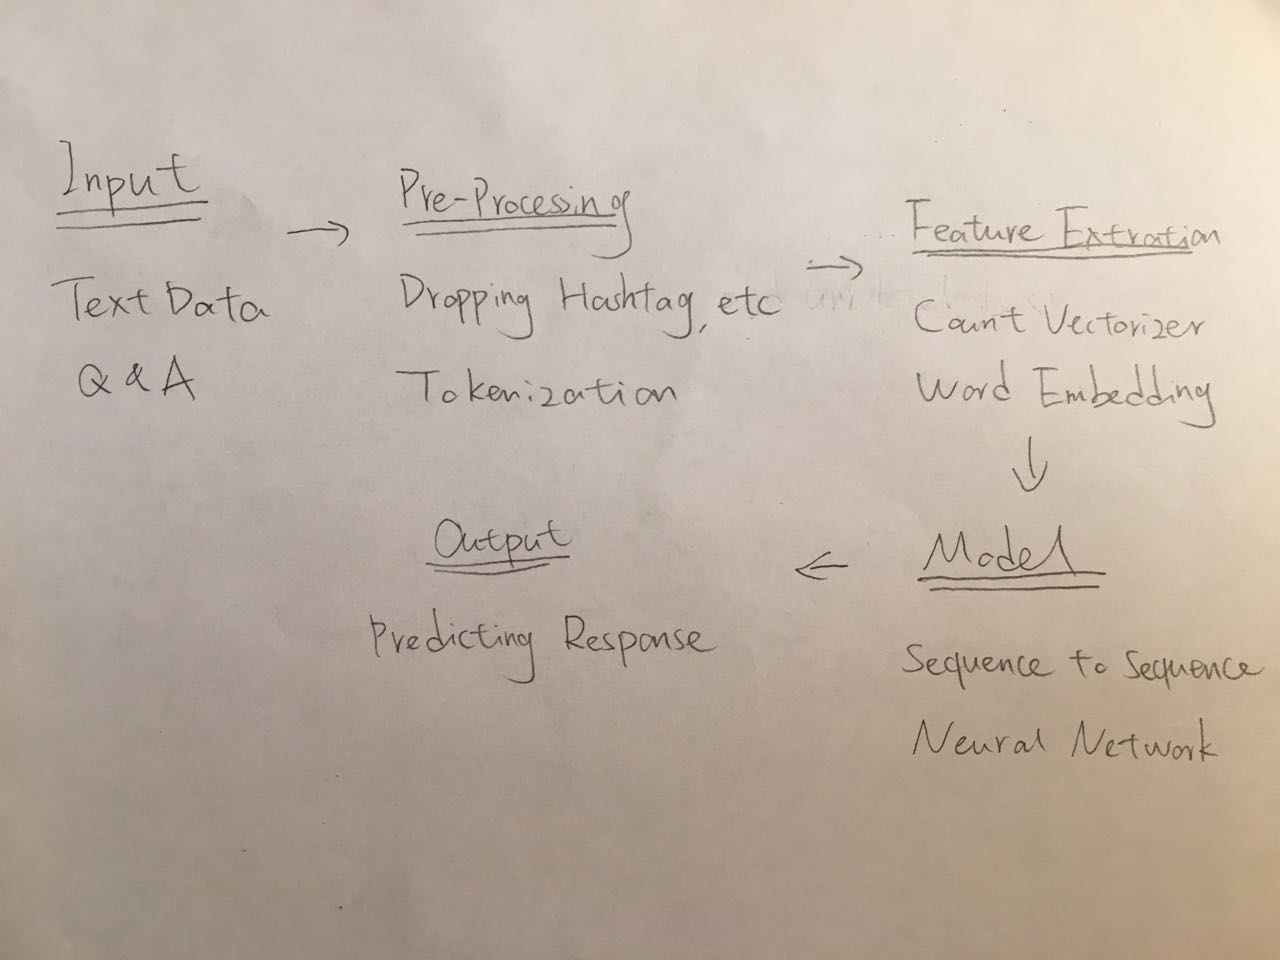 Input
Text Data
Q & A
→
Pre-Processing
Dropping Hashtag, etc
Tokenization
→
Feature Extration
Count Vectorizer
Word Embedding
↓
Model
Sequence to Sequence
Neural Network
←
Output
Predicting Response